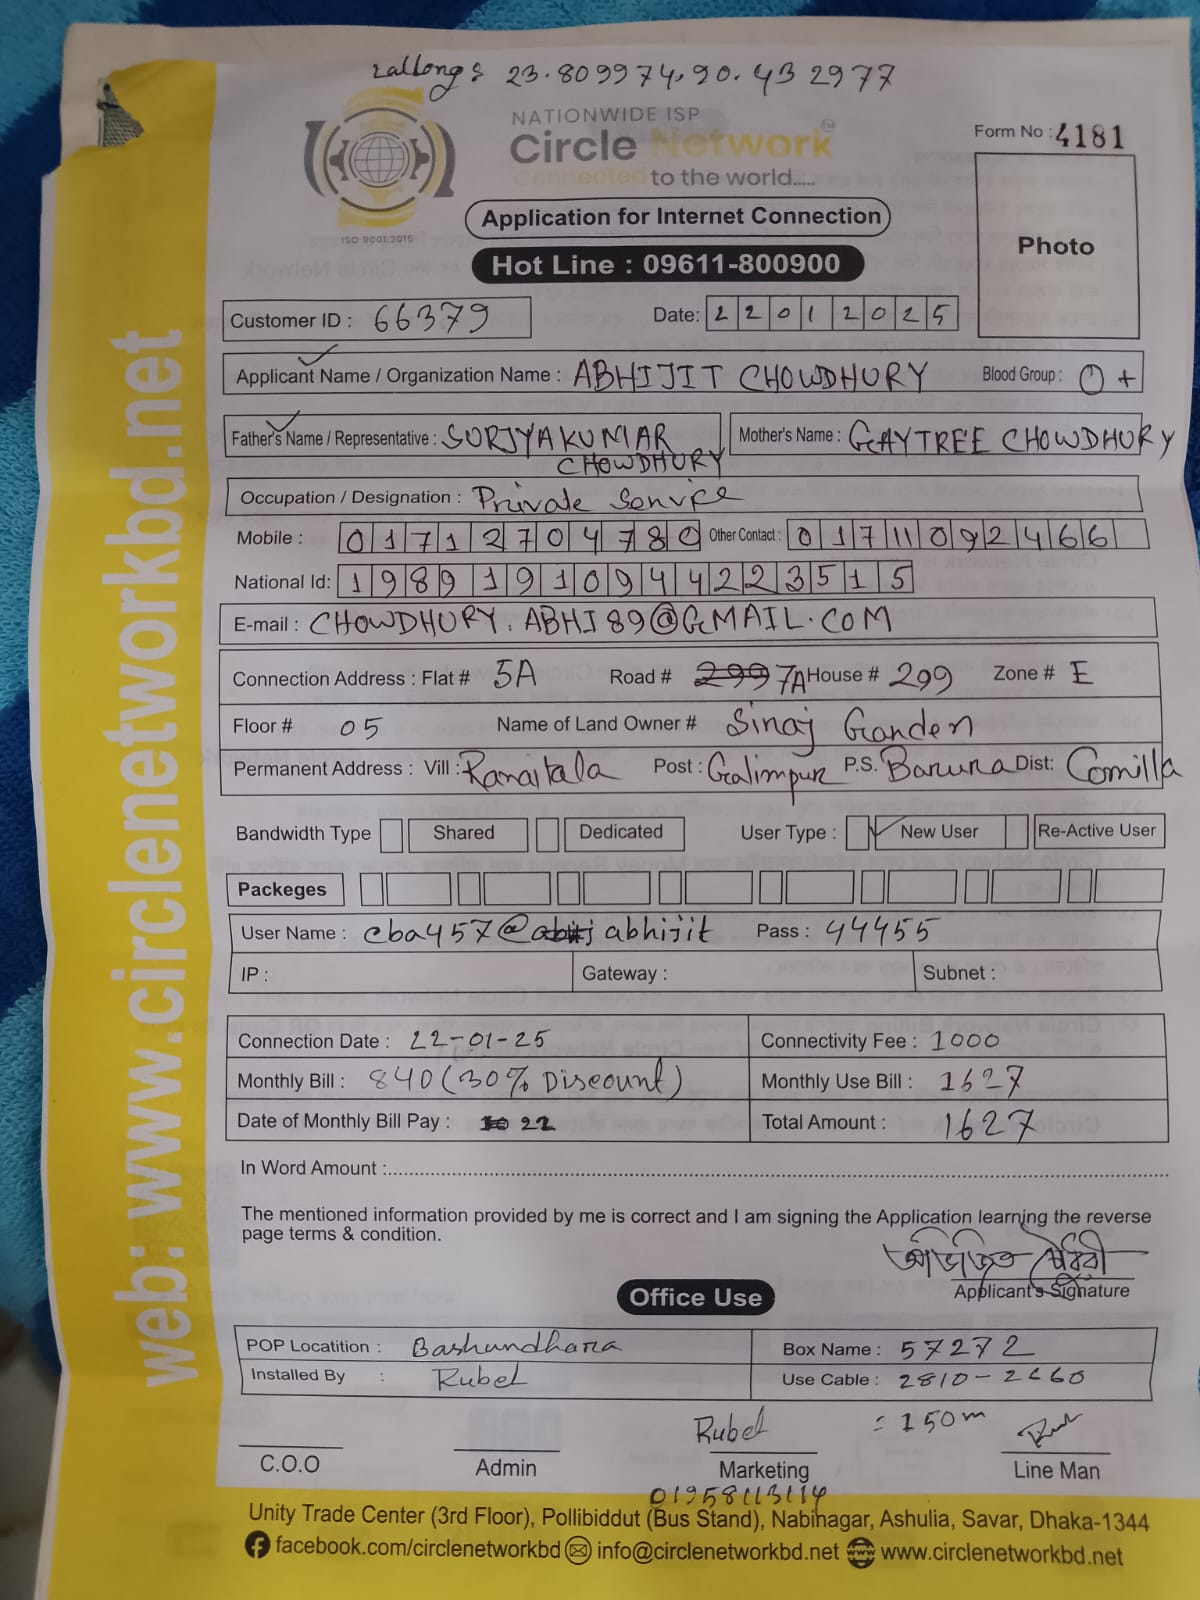 Latlong: 23.809974,90.432977
NATIONWIDE ISP
Circle Network
Connected to the world.....
ISO 9001:2015
Form No : 4181
Application for Internet Connection
Photo
Hot Line : 09611-800900
Customer ID : 66379 Date: 22012025
Applicant Name / Organization Name : ABHIJIT CHOWDHURY Blood Group : O+
Father's Name / Representative : SURJYA KUMAR CHOWDHURY Mother's Name : GAYTREE CHOWDHURY
Occupation / Designation : Private Service
Mobile : 01712704780 Other Contact : 01711092466
National Id: 19891910944223515
E-mail : CHOWDHURY.ABHI89@GMAIL.COM
Connection Address : Flat # 5A Road # 299 7A House # 299 Zone # E
Floor # 05 Name of Land Owner # Siraj Garden
Permanent Address : Vill : Ramaitala Post : Galimpur P.S. Barura Dist: Comilla
Bandwidth Type Shared Dedicated User Type : New User Re-Active User
Packeges
User Name : cba457@abhijit Pass : 44455
IP : Gateway : Subnet :
Connection Date : 22-01-25 Connectivity Fee : 1000
Monthly Bill : 840 (30% Discount) Monthly Use Bill : 1627
Date of Monthly Bill Pay : 22 Total Amount : 1627
In Word Amount :
The mentioned information provided by me is correct and I am signing the Application learning the reverse
page terms & condition.
অভিজিত চৌধুরী
Applicant's Signature
Office Use
POP Locatition : Bashundhara Box Name : 57272
Installed By : Rubel Use Cable : 2810-2660
Rubel = 150m
C.O.O Admin Marketing Line Man
01958113114
Unity Trade Center (3rd Floor), Pollibiddut (Bus Stand), Nabinagar, Ashulia, Savar, Dhaka-1344
facebook.com/circlenetworkbd info@circlenetworkbd.net www.circlenetworkbd.net
web: www.circlenetworkbd.net